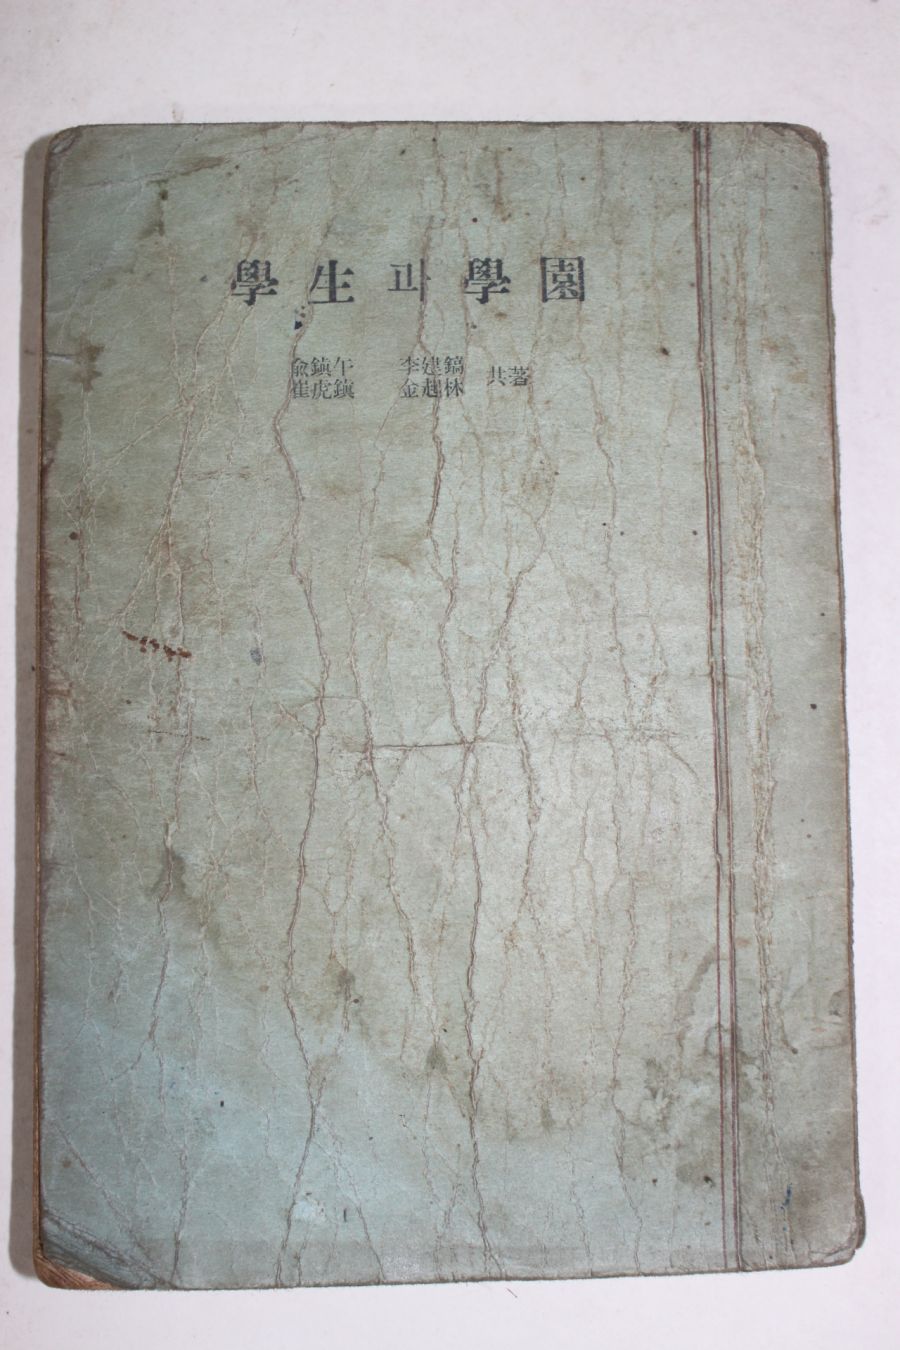 學生과學園
兪鎭午 李建鎬 共著
崔虎鎭 金趙林